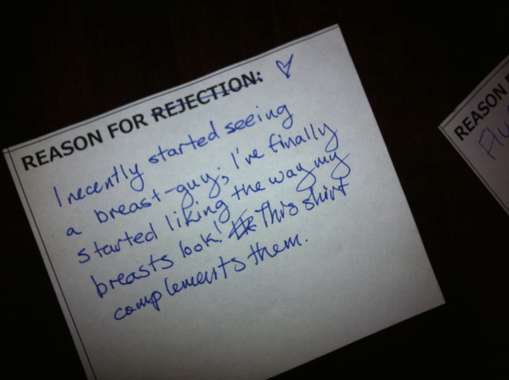 REASON FOR REJECTION: ♡
I recently started seeing
a breast-guy; I've finally
started liking the way my
breasts look! This shirt
complements them.
REASON F